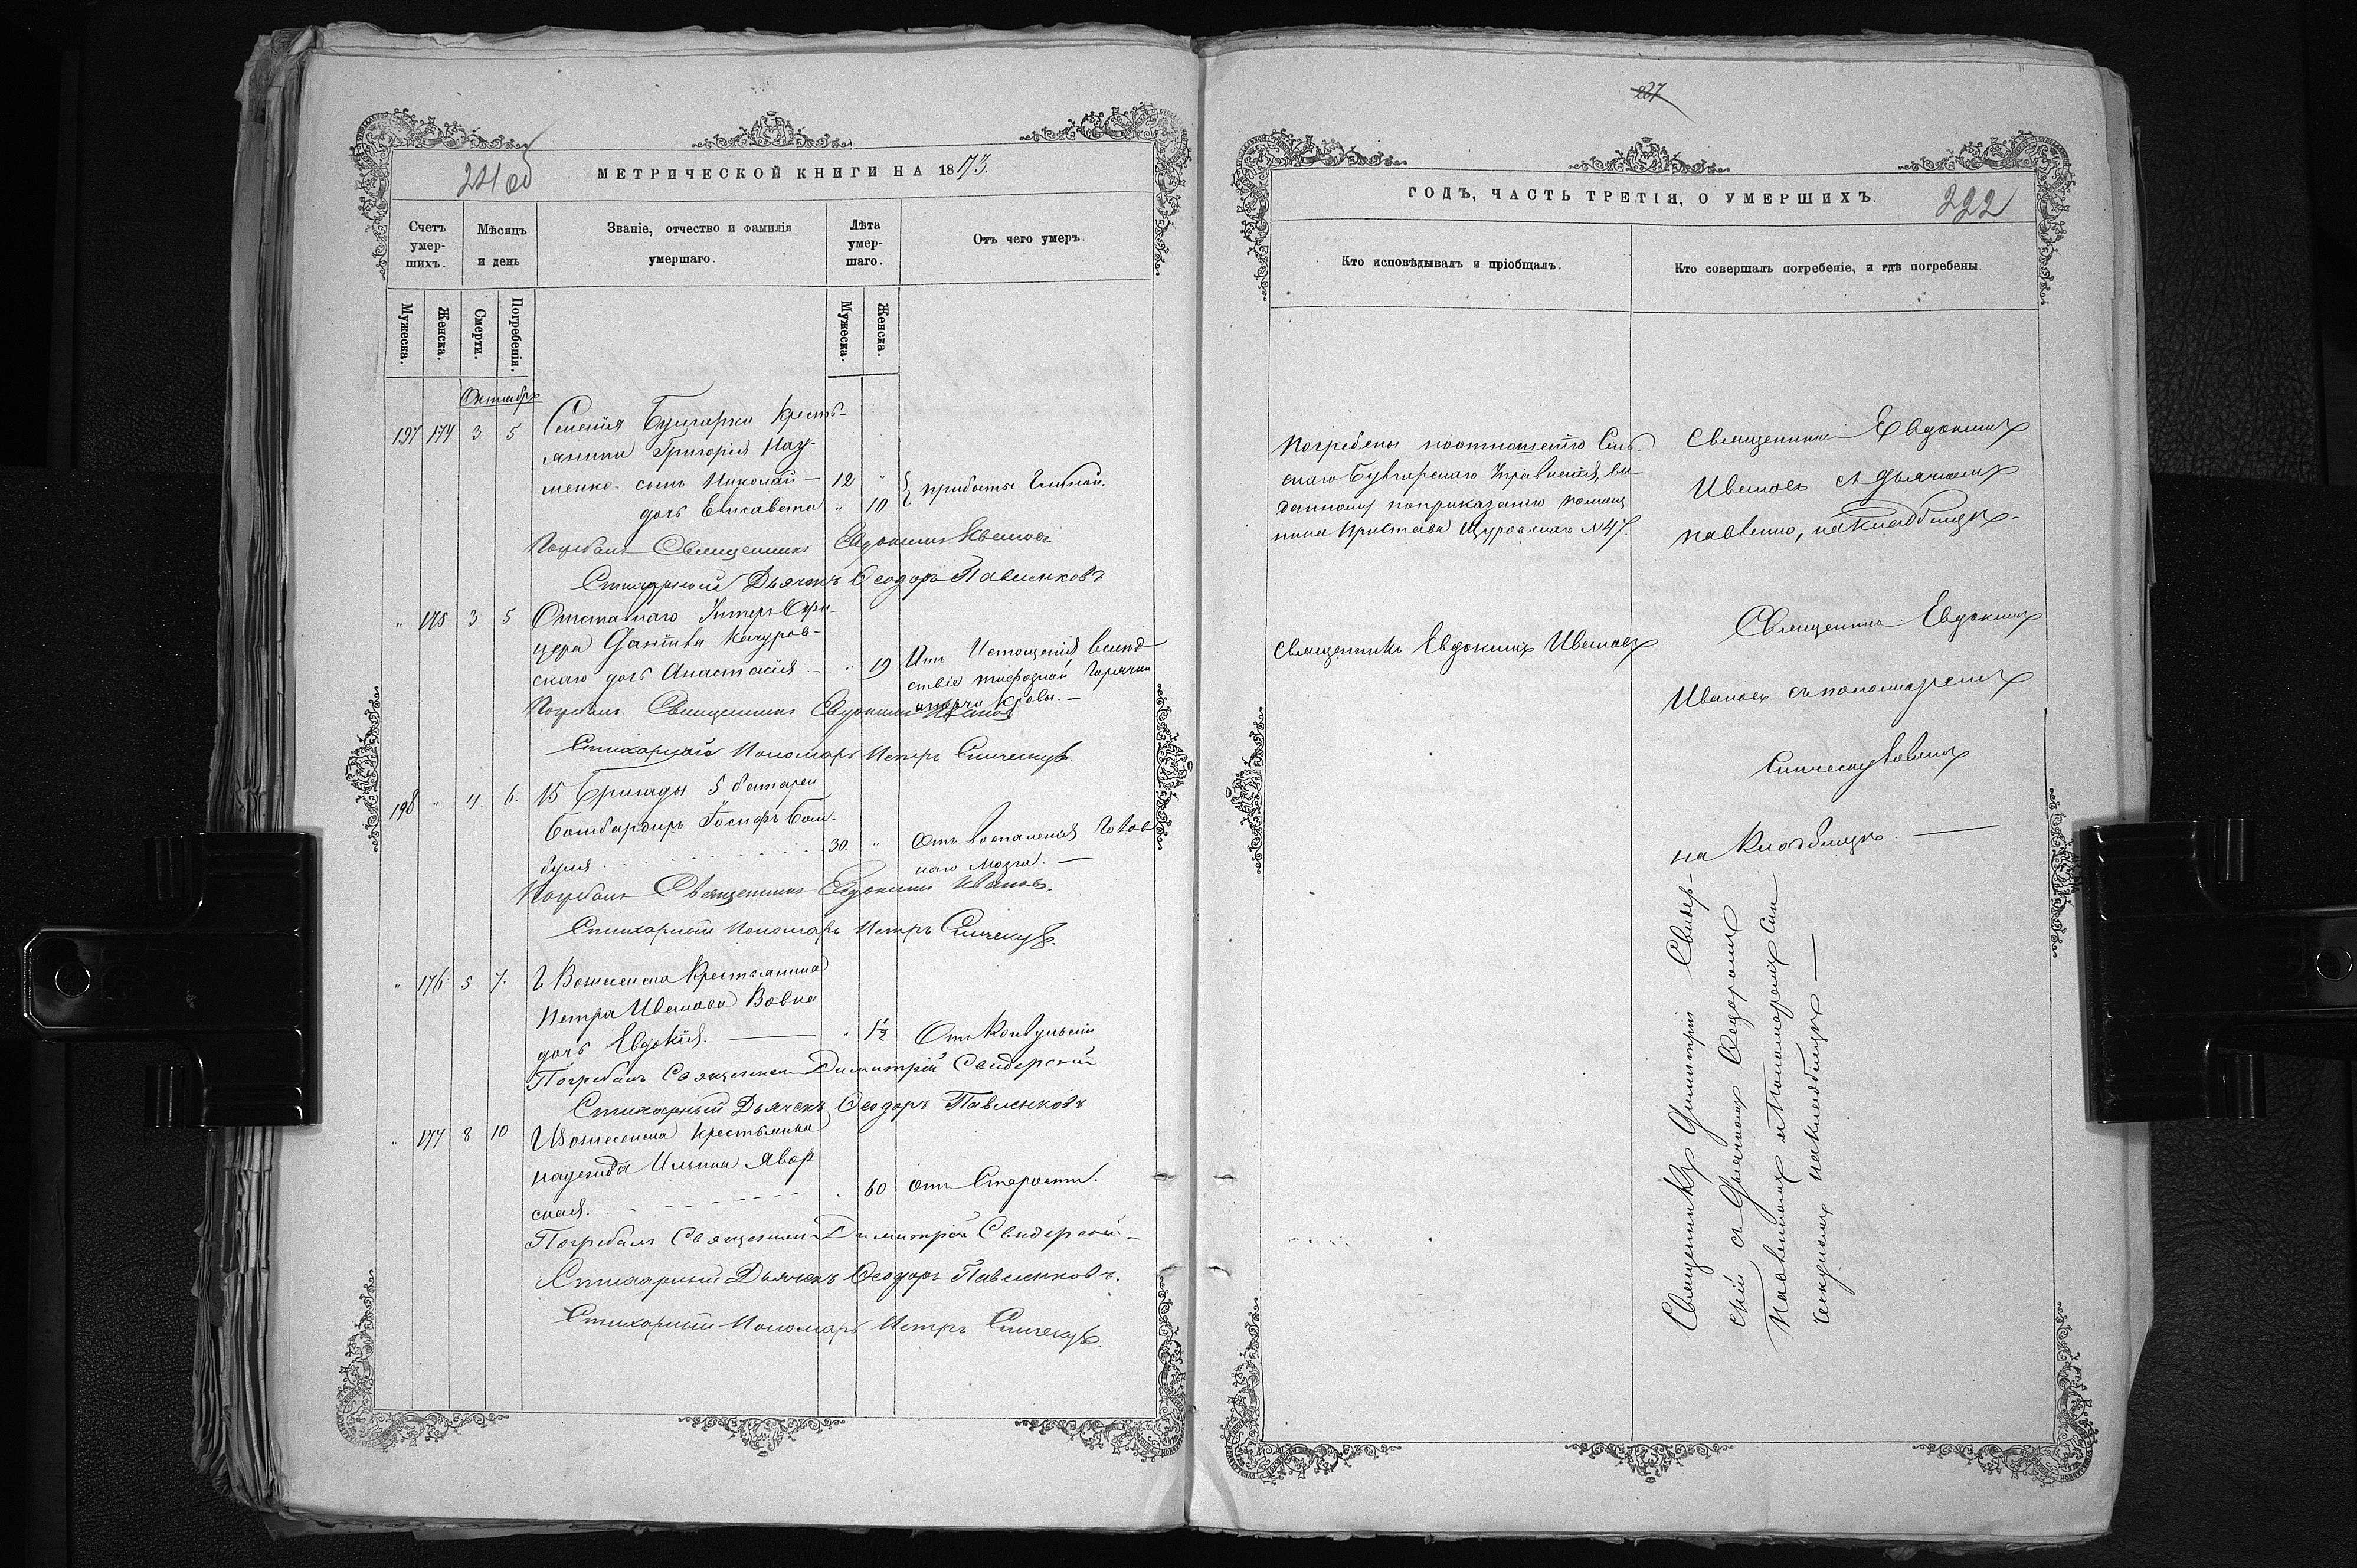 МЕТРИЧЕСКОЙ КНИГИ НА 1873.
Счетъ умер-шихъ.
Мѣсяцъ и день
Званіе, отчество и фамилія умершаго.
Лѣта умер-шаго.
Отъ чего умеръ.
Мужеска.
Женска.
Смерти.
Погребенія.
Мужеска.
Женска.
Октябрь
197 174 3 5 Селенія Булгарки Кресть-
янина Григорія Нау-
менко сынъ Николай — 12 "
дочь Елисавета " 10 прибиты глиной.
Погребалъ Священникъ Евдокимъ Ивановъ
Стихарный Дьячекъ Ѳеодоръ Павленковъ
" 175 3 5 Отставнаго Унтеръ Офи-
цера Даніила Качуров-
скаго дочь Анастасія — " 19 Отъ Истощенія вслѣд
ствіе тифозной Горячки
Погребалъ Священникъ Евдокимъ Ивановъ
Стихарный Пономарь Петръ
198 " 4. 6. 15 Бригады 5 батареи
Бомбардиръ Іосифъ Бом-
буля 30. " Отъ воспаленія Голов
наго мозга. —
Погребалъ Священникъ Евдокимъ Ивановъ.
Стихарный Пономарь Петръ
" 176 5 7. Г Вознесенска Крестьянина
Петра Иванова Вовка
дочь Евдокія. — " 1½ Отъ Конвульсіи
Погребалъ Священникъ Димитрій Свидерскій
Стихарный Дьячекъ Ѳеодоръ Павленковъ
" 177 8 10 Г Вознесенска Крестьянка
Надежда Ильина Явор
ская. " 60 отъ Старости.
Погребалъ Священникъ Димитрій Свидерскій —
Стихарный Дьячекъ Ѳеодоръ Павленковъ.
Стихарный Пономарь Петръ
227
ГОДЪ, ЧАСТЬ ТРЕТІЯ, О УМЕРШИХЪ.
222
Кто исповѣдывалъ и пріобщалъ.
Кто совершалъ погребеніе, и гдѣ погребены.
Погребены по отношенію Сель-
скаго Булгарскаго Управленія, вы-
данному по приказанію помощ
ника Пристава Щуровскаго № 47.
Священникъ Евдокимъ
Ивановъ съ Дьячкомъ
Павленко, на Кладбищѣ.
Священникъ Евдокимъ Ивановъ
Священникъ Евдокимъ
Ивановъ съ пономаремъ
на Кладбищѣ. —
Священникъ Димитрій Свидер-
скій съ Дьячкомъ Ѳедоромъ
Павленкомъ и Пономаремъ
на кладбищѣ —